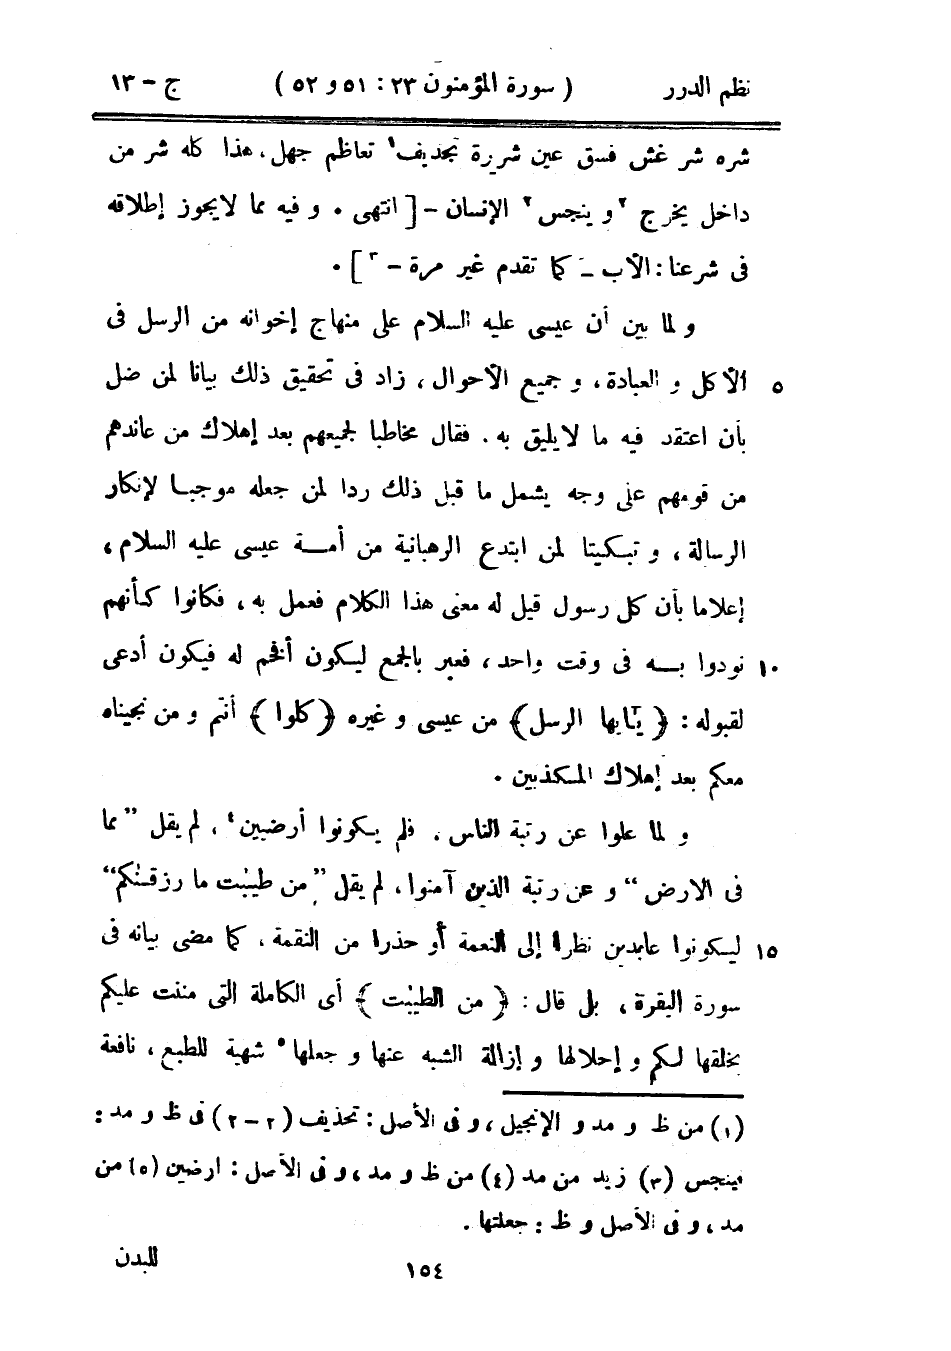 نظم الدرر ( سورة المؤمنون ٢٣ : ٥١ و ٥٢ ) ج – ١٣
شره شر غش فسق عين شريرة تجديف١ تعاظم جهل، هذا كله شر من
داخل يخرج ٢و ينجس٢ الإنسان – [ انتهى . و فيه مما لا يجوز إطلاقه
فى شرعنا : الأب – كما تقدم غير مرة – ٣] .
و لما بين أن عيسى عليه السلام على منهاج إخوانه من الرسل فى
٥ الأكل و العبادة، و جميع الأحوال ، زاد فى تحقيق ذلك بيانا لمن ضل
بأن اعتقد فيه ما لا يليق به . فقال مخاطبا لجميعهم بعد إهلاك من عاندهم
من قومهم على وجه يشمل ما قبل ذلك ردا لمن جعله موجبا لإنكار
الرسالة ، و تبكيتا لمن ابتدع الرهبانية من أمة عيسى عليه السلام ،
إعلاما بأن كل رسول قيل له معنى هذا الكلام فعمل به ، فكانوا كأنهم
١٠ نودوا به فى وقت واحد ، فعبر بالجمع ليكون أفخم له فيكون أدعى
لقبوله : ﴿ يٰٓايها الرسل ﴾ من عيسى و غيره ﴿ كلوا ﴾ أنتم و من نجيناه
معكم بعد إهلاك المكذبين .
و لما علوا عن رتبة الناس ، فلم يكونوا أرضيين٤ ، لم يقل ”مما
فى الارض“ و عن رتبة الذين آمنوا ، لم يقل ”من طيبٰت ما رزقنٰكم“
١٥ ليكونوا عابدين نظرا إلى النعمة أو حذرا من النقمة ، كما مضى بيانه فى
سورة البقرة ، بل قال : ﴿ من الطيبٰت ﴾ أى الكاملة التى مننت عليكم
بخلقها لكم و إحلالها و إزالة الشبه عنها و جعلها٥ شهية للطبع ، نافعة
(١) من ظ و مد و الإنجيل ، و فى الأصل : تحذيف (٢–٢) فى ظ و مد :
فينجس (٣) زيد من مد (٤) من ظ و مد ، و فى الأصل : ارضين (٥) من
مد ، و فى الأصل و ظ : جعلتها .
للبدن
١٥٤